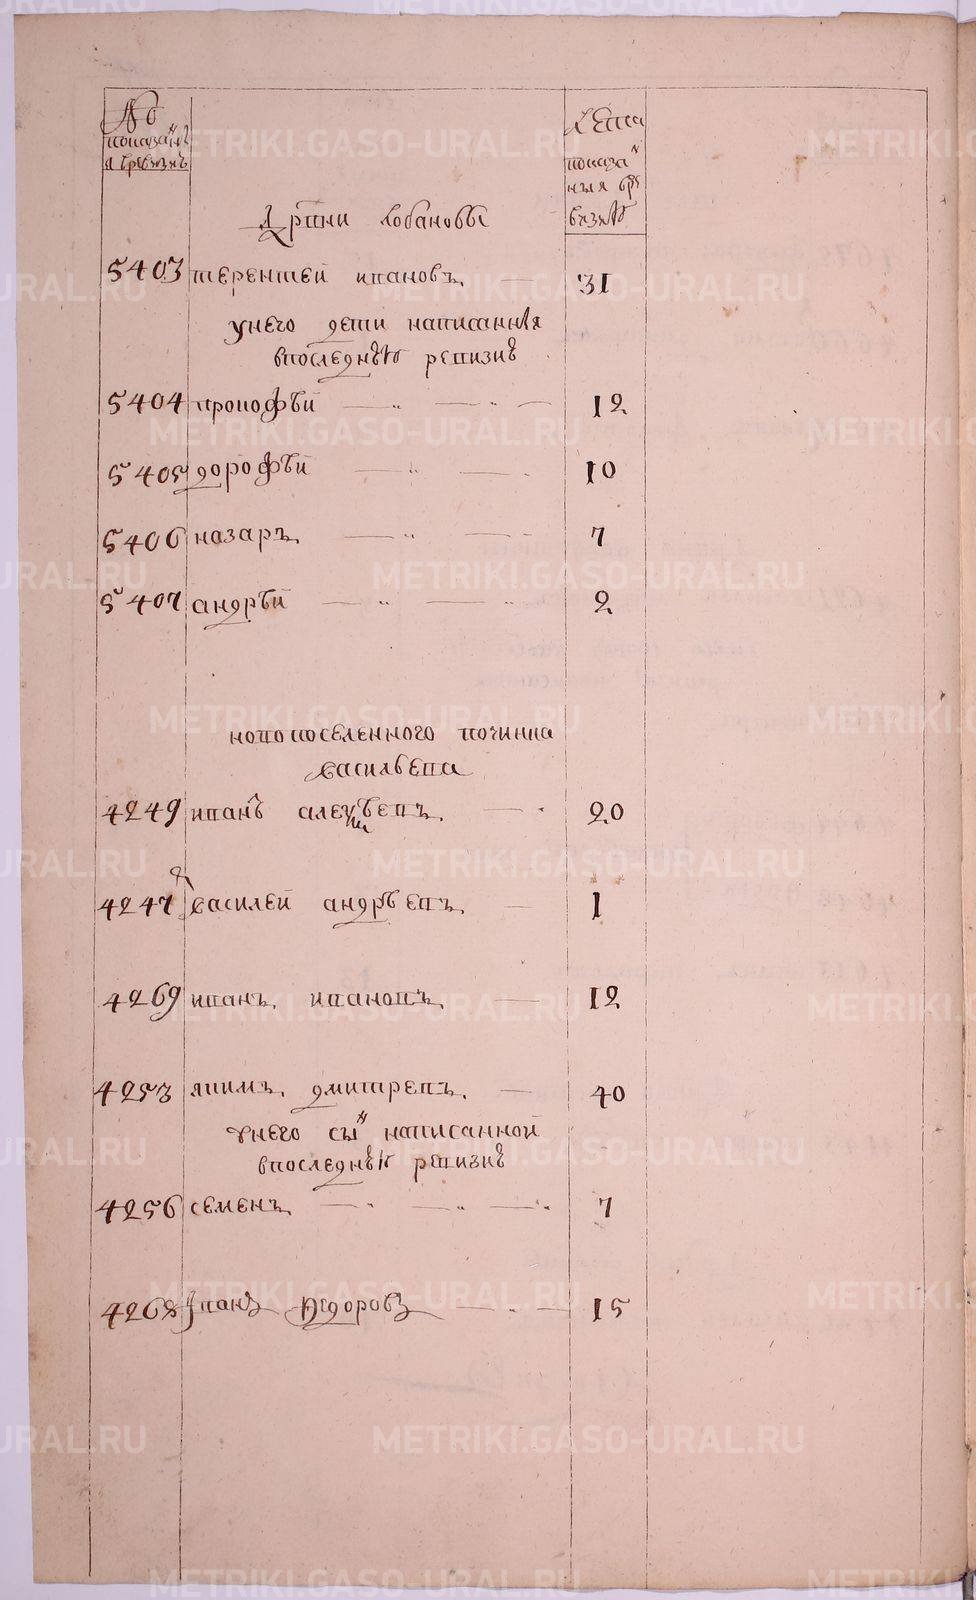 №
показаны
я вревизиъ
Лѣта
показа
ныя вре
визиѣ
Дрвни Лобановы
5403 терентей ивановъ 31
унего дети написанныя
впоследнѣй ревизиѣ
5404 прокофѣй 12
5405 дорофѣй 10
5406 назаръ 7
5407 андрѣй 2
новопоселенного починка
васильева
4249 иванъ алексѣевъ 20
4247 василей андрѣевъ 1
4269 иванъ ивановъ 12
4253 якимъ дмитревъ 40
унего сынъ написанной
впоследнѣй ревизиѣ
4256 семенъ 7
4268 Иванъ Ѳедоровъ 15
METRIKI.GASO-URAL.RU